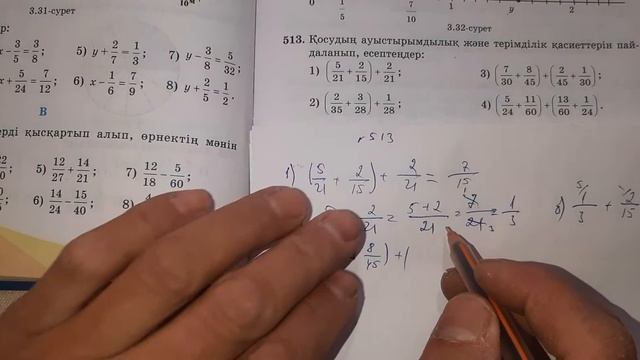 3.31-сурет
10м
0 1/5 7/10 1 y 2
3.32-сурет
x - 3/5 = 3/8; 5) y + 2/7 = 1/3; 7) y - 3/8 = 5/32;
x + 5/24 = 7/12; 6) x - 1/6 = 7/9; 8) y + 2/5 = 1/2.
B
қысқартып алып, өрнектің мәнін
5) 12/27 + 14/21; 7) 12/18 - 5/60;
6) 24/14 - 15/40; 8)
513. Қосудың ауыстырымдылық және терімділік қасиеттерін пай-
даланып, есептеңдер:
1) (5/21 + 2/15) + 2/21; 3) (7/30 + 8/45) + (2/45 + 1/30);
2) (2/35 + 3/28) + 1/28; 4) (5/24 + 11/60) + (13/60 + 1/24).
№513
1) (5/21 + 2/15) + 2/21 = 7/15
2/21 = 5+2/21 = 7/21 = 1/3 1/3 + 2/15
8/45) + (